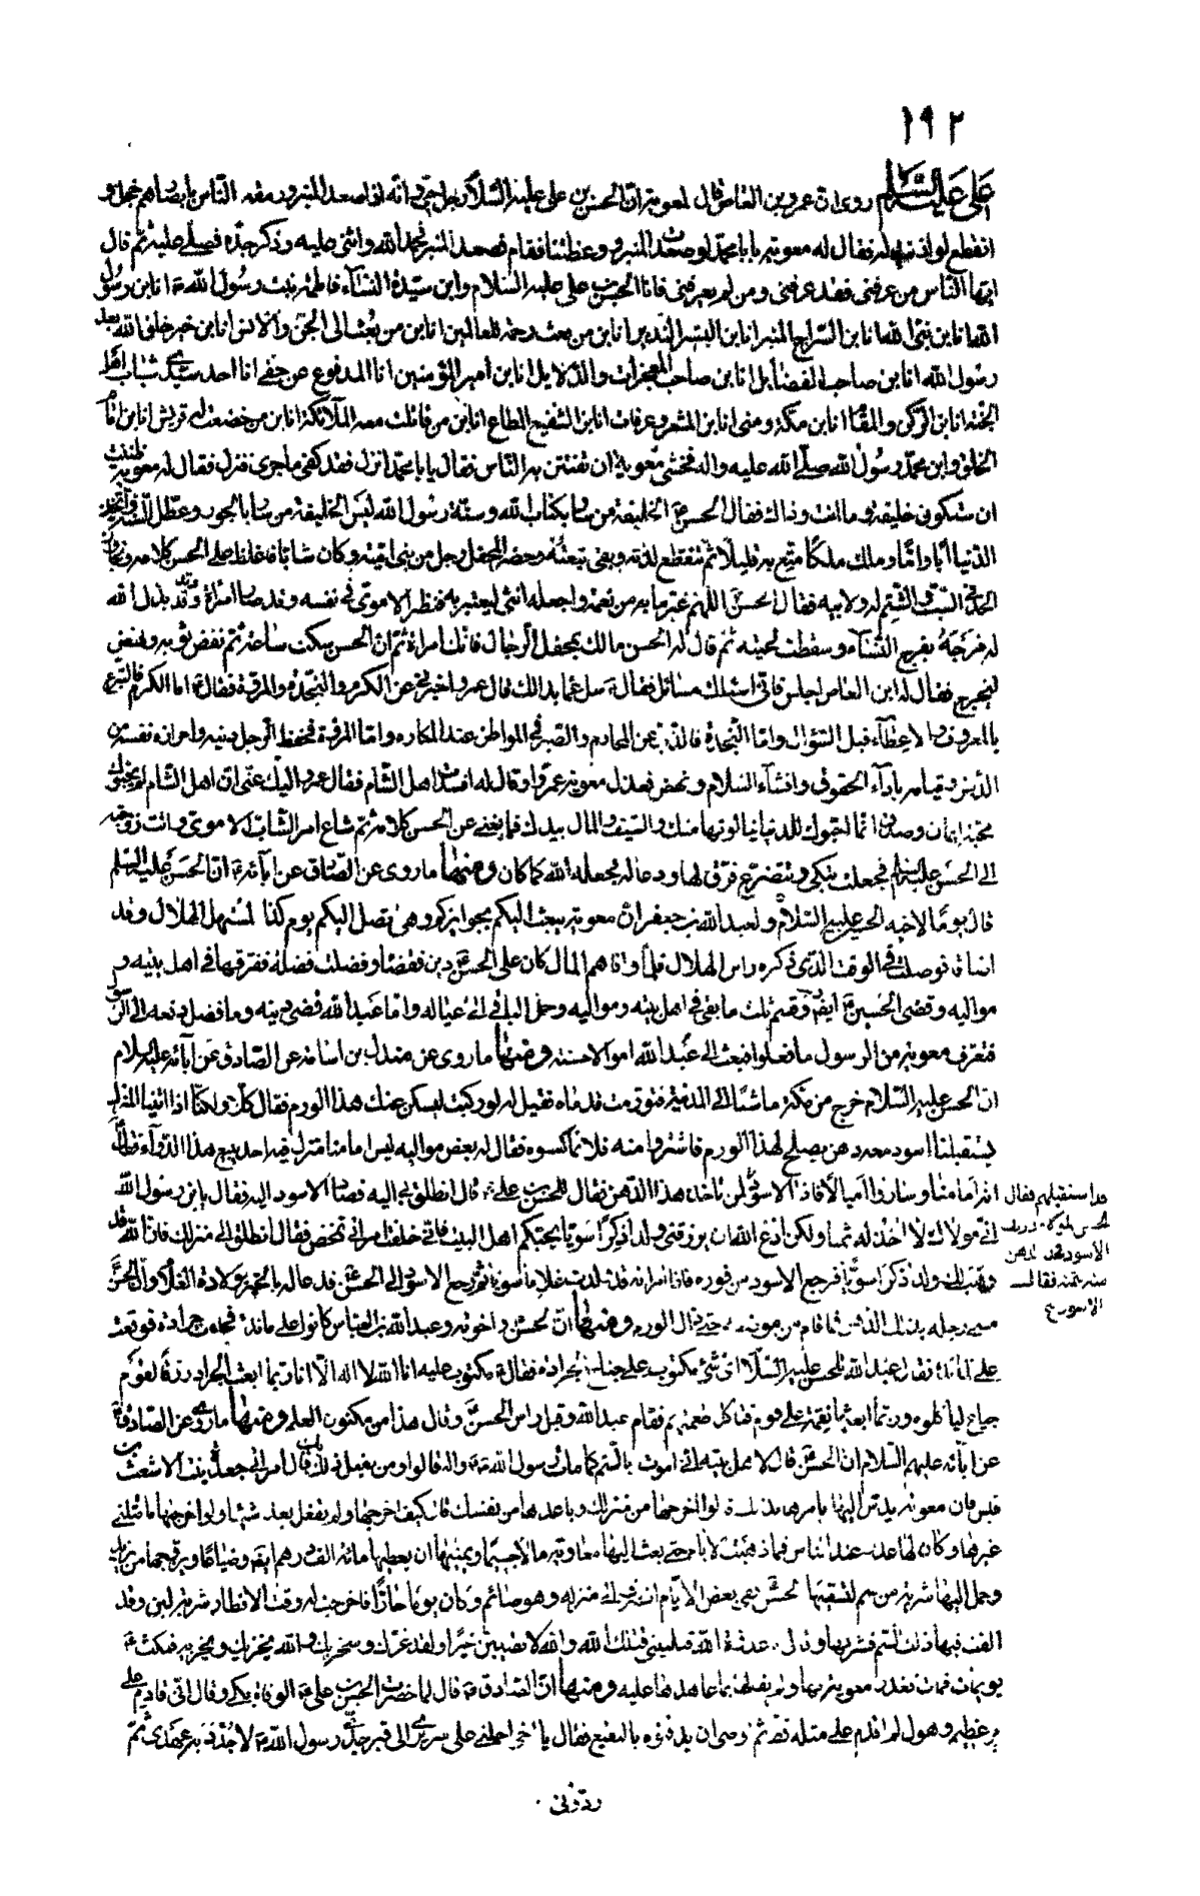 ١٩٢
علی علیه السلام روی ان عمرو بن العاص قال لمعویة ان الحسن بن علی علیه السلام رجل حیی وانه اذا صعد المنبر ورمقه الناس بابصارهم خجل و
انقطع لو اذنت له فقال له معویة یابا محمد لو صعدت المنبر و وعظتنا فقام فصعد المنبر فحمد الله واثنی علیه وذکر جده فصلی علیه ثم قال
ایها الناس من عرفنی فقد عرفنی ومن لم یعرفنی فانا الحسن بن علی علیه السلام وابن سیدة النساء فاطمة بنت رسول الله ص انا بن رسول
الله انا بن نبی الله انا بن السراج المنیر انا بن البشیر النذیر انا بن من بعث رحمة للعالمین انا بن من بعث الی الجن والانس انا بن خیر خلق الله بعد
رسول الله انا بن صاحب الفضائل انا بن صاحب المعجزات والدلایل انا بن امیر المؤمنین انا المدفوع عن حقی انا احد سیدی شباب اهل
الجنة انا بن الرکن والمقام انا بن مکة ومنی انا بن المشعر وعرفات انا بن الشفیع المطاع انا بن من قاتلت معه الملائکة انا بن من خضعت له قریش انا بن امام
الخلق وابن محمد رسول الله صلی الله علیه واله فخشی معویة ان تفتتن به الناس فقال یابا محمد انزل فقد کفی ما جری فنزل فقال له معویة ظننت
ان ستکون خلیفة وما انت وذاک فقال الحسن ع الخلیفة من سار بکتاب الله وسنة رسول الله لیس الخلیفة من سار بالجور وعطل السنة واتخذ
الدنیا ابا واما وملک ملکا متع به قلیلا ثم تنقطع لذته وبقی تبعته وحضر المحفل رجل من بنی امیة وکان شابا فاغلظ علی الحسن کلامه وتجاوز
الحد فی السب والشتم له ولابیه فقال الحسن اللهم غیر ما به من نعمة واجعله انثی لیعتبر به فنظر الاموی فی نفسه وقد صار امراة وقد بدل الله
له فرجه بفرج النساء وسقطت لحیته ثم قال له الحسن مالک بمحفل الرجال فانک امراة ثم ان الحسن سکت ساعة ثم نفض ثوبه ونهض
لیخرج فقال له ابن العاص اجلس فانی اسئلک مسائل فقال سل عما بدالک قال عمرو اخبرنی عن الکرم والنجدة والمروة فقال اما الکرم فالتبرع
بالمعروف والاعطاء قبل السؤال واما النجدة فالذب عن المحارم والصبر فی المواطن عند المکاره واما المروة فحفظ الرجل دینه واحرازه نفسه من
الدنس وقیامه باداء الحقوق وافشاء السلام ونهض فعذل معویة عمرا وقال له افسدت اهل الشام فقال عمرو الیک عنی ان اهل الشام لم یحبوک
محبة ایمان ودین انما احبوک للدنیا ینالونها منک والسیف والمال بیدک فما یغنی عن الحسن کلامه ثم شاع امر الشاب الاموی واتت زوجته
الی الحسن علیه السلام فجعلت تبکی وتتضرع فرق لها ودعا له فجعله الله کما کان ومنها ما روی عن الصادق عن آبائه ان الحسن علیه السلم
قال یوما لاخیه الحسین علیه السلام ولعبد الله بن جعفر ان معویة یبعث الیکم بجوایزکم وهی تصل الیکم یوم کذا لمستهل الهلال وقد
اضاقا فوصلت فی الوقت الذی ذکره راس الهلال فلما وافاهم المال کان علی الحسن دین فقضاه وفضلت فضلة ففرقها فی اهل بیته و
موالیه وقضی الحسین ایضا وقسم ثلث ما بقی فی اهل بیته وموالیه وحمل الباقی الی عیاله واما عبد الله فقضی دینه وما فضل دفعه الی الرسول
فتعرف معویة من الرسول ما فعلوا فبعث الی عبد الله اموالا حسنة ومنها ما روی عن مندل بن اسامة عن الصادق عن آبائه علیه السلام
ان الحسن علیه السلام خرج من مکة ماشیا الی المدینة فتورمت قدماه فقیل له لو رکبت لیسکن عنک هذا الورم فقال کلا ولکنا اذا اتینا المنزل
یستقبلنا اسود معه دهن یصلح لهذا الورم فاشتروا منه فلا تماکسوه فقال له بعض موالیه لیس امامنا منزل فیه احد یبیع هذا الدواء فقال
انه امامنا وساروا امیالا فاذا الاسود لمن تاخذ هذا الدهن فقال للحسن بن علی ع قال انطلق بی الیه فصار الاسود الیه فقال یابن رسول الله
انی مولاک لا اخذ له ثمنا ولکن ادع الله ان یرزقنی ولدا ذکرا سویا یحبکم اهل البیت فانی خلفت امراتی تمخض فقال انطلق الی منزلک فان الله قد
وهب لک ولدا ذکرا سویا فرجع الاسود من فوره فاذا امراته قد ولدت غلاما سویا ثم رجع الاسود الی الحسن فدعا له بالخیر بولادة الغلام وان الحسن
مسح رجله بذلک الدهن فما قام من موضعه حتی زال الورم ومنها ان الحسن واخوته وعبد الله بن العباس کانوا علی مائدة فجاءت جرادة فوقعت
علی المائدة فقال عبد الله للحسن علیه السلام ای شیء مکتوب علی جناح الجرادة فقال مکتوب علیه انا الله لا اله الا انا ربما ابعث الجراد رزقا لقوم
جیاع لیاکلوه وربما ابعثها نقمة علی قوم فتاکل طعمتهم فقام عبد الله وقبل راس الحسن وقال هذا من مکنون العلم ومنها ما روی عن الصادق
عن آبائه علیهم السلام ان الحسن ع قال لاهل بیته انی اموت بالسم کما مات رسول الله ص واله قالوا ومن یفعل ذلک قال امراتی جعدة بنت الاشعث بن
قیس فان معویة یدس الیها یامرها بذلک قالوا اخرجها من منزلک وباعدها من نفسک قال کیف اخرجها ولم تفعل بعد شیئا ولو اخرجتها ما قتلنی
غیرها وکان لها عذر عند الناس فما ذهبت الایام حتی بعث الیها معاویة مالا جسیما ویمنیها ان یعطیها مائة الف درهم ایضا وضیاعا ویزوجها من یزید
وحمل الیها شربة من سم لتسقیها الحسن ففی بعض الایام انصرف الی منزله وهو صائم وکان یوما حارا فاخرجت له وقت الافطار شربة لبن وقد
القت فیها ذلک السم فشربها وقال عدوة الله قتلتینی قتلک الله والله لا تصیبین خیرا ولقد غرک وسخر بک والله یخزیک ویخزیه فمکث
یومان فمات فغدر معویة بها ولم یف لها بما عاهدها علیه ومنها ان الصادق ع قال لما حضرت الحسن بن علی ع الوفاة بکی وقال انی قادم علی
امر عظیم وهول لم اقدم علی مثله قط ثم اوصی ان یدفنوه بالبقیع فقال یا اخی احملنی علی سریری الی قبر جدی رسول الله ص لاجدد به عهدی ثم
ردونی
قد استقبلهم فقال
الحسن لمولاه دونک
الاسود فخذ الدهن
منه بثمنه فقال
الاسود صح